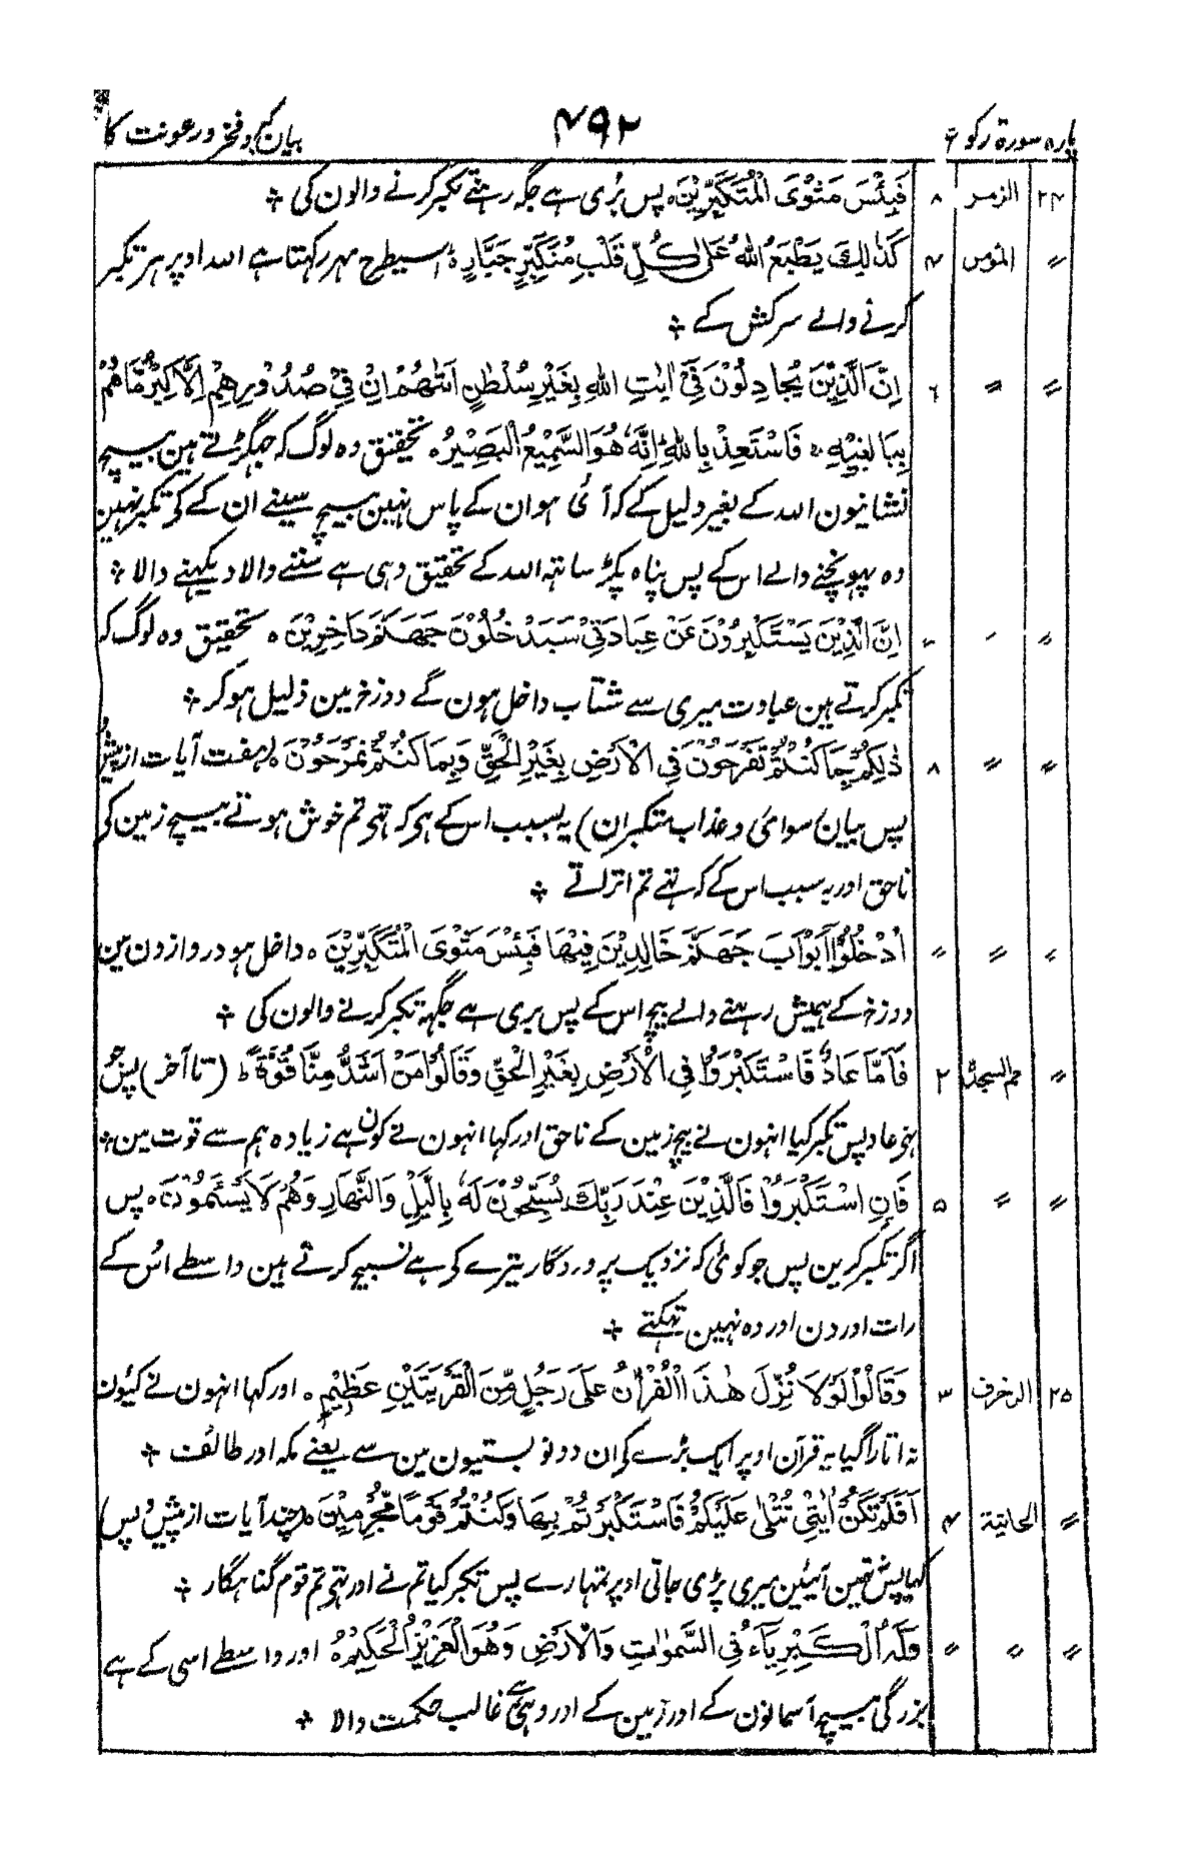 پارہ سورۃ رکوع ۴۹۲ بیان کبر و فخر ورعونت کا
۲۴ الزمر ۸ فَبِئْسَ مَثْوَى الْمُتَكَبِّرِيْنَ ہ پس بُری ہے جگہ رہنے تکبر کرنے والون کی ÷
〃 المؤمن ۴ كَذٰلِكَ يَطْبَعُ اللّٰهُ عَلٰى كُلِّ قَلْبِ مُتَكَبِّرٍ جَبَّارٍ ہ اسیطرح مہر رکھتا ہے اللہ اوپر ہر تکبر
کرنے والے سرکش کے ÷
〃 〃 ٦ اِنَّ الَّذِيْنَ يُجَادِلُوْنَ فِيْ اٰيٰتِ اللّٰهِ بِغَيْرِ سُلْطٰنٍ اَتٰهُمْ اِنْ فِيْ صُدُوْرِهِمْ اِلَّا كِبْرٌ مَّا هُمْ
بِبَالِغِيْهِ ہ فَاسْتَعِذْ بِاللّٰهِ اِنَّهٗ هُوَ السَّمِيْعُ الْبَصِيْرُ ہ تحقیق وہ لوگ کہ جہگڑتے ہین بیچ
نشانیون اللہ کے بغیر دلیل کے کہ آئی ہو ان کے پاس نہین بیچ سینے ان کے کے تکبر نہین
وہ پہونچنے والے اس کے پس پناہ پکڑ ساتہہ اللہ کے تحقیق وہی ہے سننے والا دیکہنے والا ÷
〃 〃 〃 اِنَّ الَّذِيْنَ يَسْتَكْبِرُوْنَ عَنْ عِبَادَتِيْ سَيَدْخُلُوْنَ جَهَنَّمَ دَاخِرِيْنَ ہ تحقیق وہ لوگ کہ
تکبر کرتے ہین عبادت میری سے شتاب داخل ہون گے دوزخ مین ذلیل ہوکر ÷
〃 〃 ۸ ذٰلِكُمْ بِمَا كُنْتُمْ تَفْرَحُوْنَ فِي الْاَرْضِ بِغَيْرِ الْحَقِّ وَبِمَا كُنْتُمْ تَمْرَحُوْنَ (ہفت آیات از پیش
پس بیان رسوائی وعذاب متکبران) یہ بسبب اس کے ہی کہ تہے تم خوش ہوتے بیچ زمین کی
ناحق اور بہ سبب اس کے کہ تہے تم اتراتے ÷
〃 〃 〃 اُدْخُلُوْٓا اَبْوَابَ جَهَنَّمَ خَالِدِيْنَ فِيْهَا فَبِئْسَ مَثْوَى الْمُتَكَبِّرِيْنَ ہ داخل ہو دروازون مین
دوزخ کے ہمیش رہنے والے بیچ اس کے پس بری ہے جگہہ تکبر کرنے والون کی ÷
〃 حم السجدۃ ۲ فَاَمَّا عَادٌ فَاسْتَكْبَرُوْا فِي الْاَرْضِ بِغَيْرِ الْحَقِّ وَقَالُوْا مَنْ اَشَدُّ مِنَّا قُوَّةً ط (تا آخر) پس جو
تہی عاد پس تکبر کیا انہون نے بیچ زمین کے ناحق اور کہا انہون نے کون ہے زیادہ ہم سے قوت مین ÷
〃 〃 ۵ فَاِنِ اسْتَكْبَرُوْا فَالَّذِيْنَ عِنْدَ رَبِّكَ يُسَبِّحُوْنَ لَهٗ بِالَّيْلِ وَالنَّهَارِ وَهُمْ لَا يَسْئَمُوْنَ ہ پس
اگر تکبر کرین پس جو کوئی کہ نزدیک پروردگار تیرے کی ہے تسبیح کرتے ہین واسطے اس کے
رات اور دن اور وہ نہین تہکتے ÷
۲۵ الزخرف ۳ وَقَالُوْا لَوْلَا نُزِّلَ هٰذَا الْقُرْاٰنُ عَلٰى رَجُلٍ مِّنَ الْقَرْيَتَيْنِ عَظِيْمٍ ہ اور کہا انہون نے کیون
نہ اتارا گیا یہ قرآن اوپر ایک بڑے کی ان دونو بستیون مین سے یعنے مکہ اور طائف ÷
〃 الجاثیۃ ۴ اَفَلَمْ تَكُنْ اٰيٰتِيْ تُتْلٰى عَلَيْكُمْ فَاسْتَكْبَرْتُمْ بِهَا وَكُنْتُمْ قَوْمًا مُّجْرِمِيْنَ (چند آیات از پیش و پس)
کیا پس تہین آیتین میری پڑی جاتی اوپر تمہارے پس تکبر کیا تم نے اور تہے تم قوم گناہگار ÷
〃 〃 〃 وَلَهُ الْكِبْرِيَآءُ فِي السَّمٰوٰتِ وَالْاَرْضِ وَهُوَ الْعَزِيْزُ الْحَكِيْمُ ہ اور واسطے اسی کے ہے
بزرگی بیچ آسمانون کے اور زمین کے اور وہی ہے غالب حکمت والا ÷